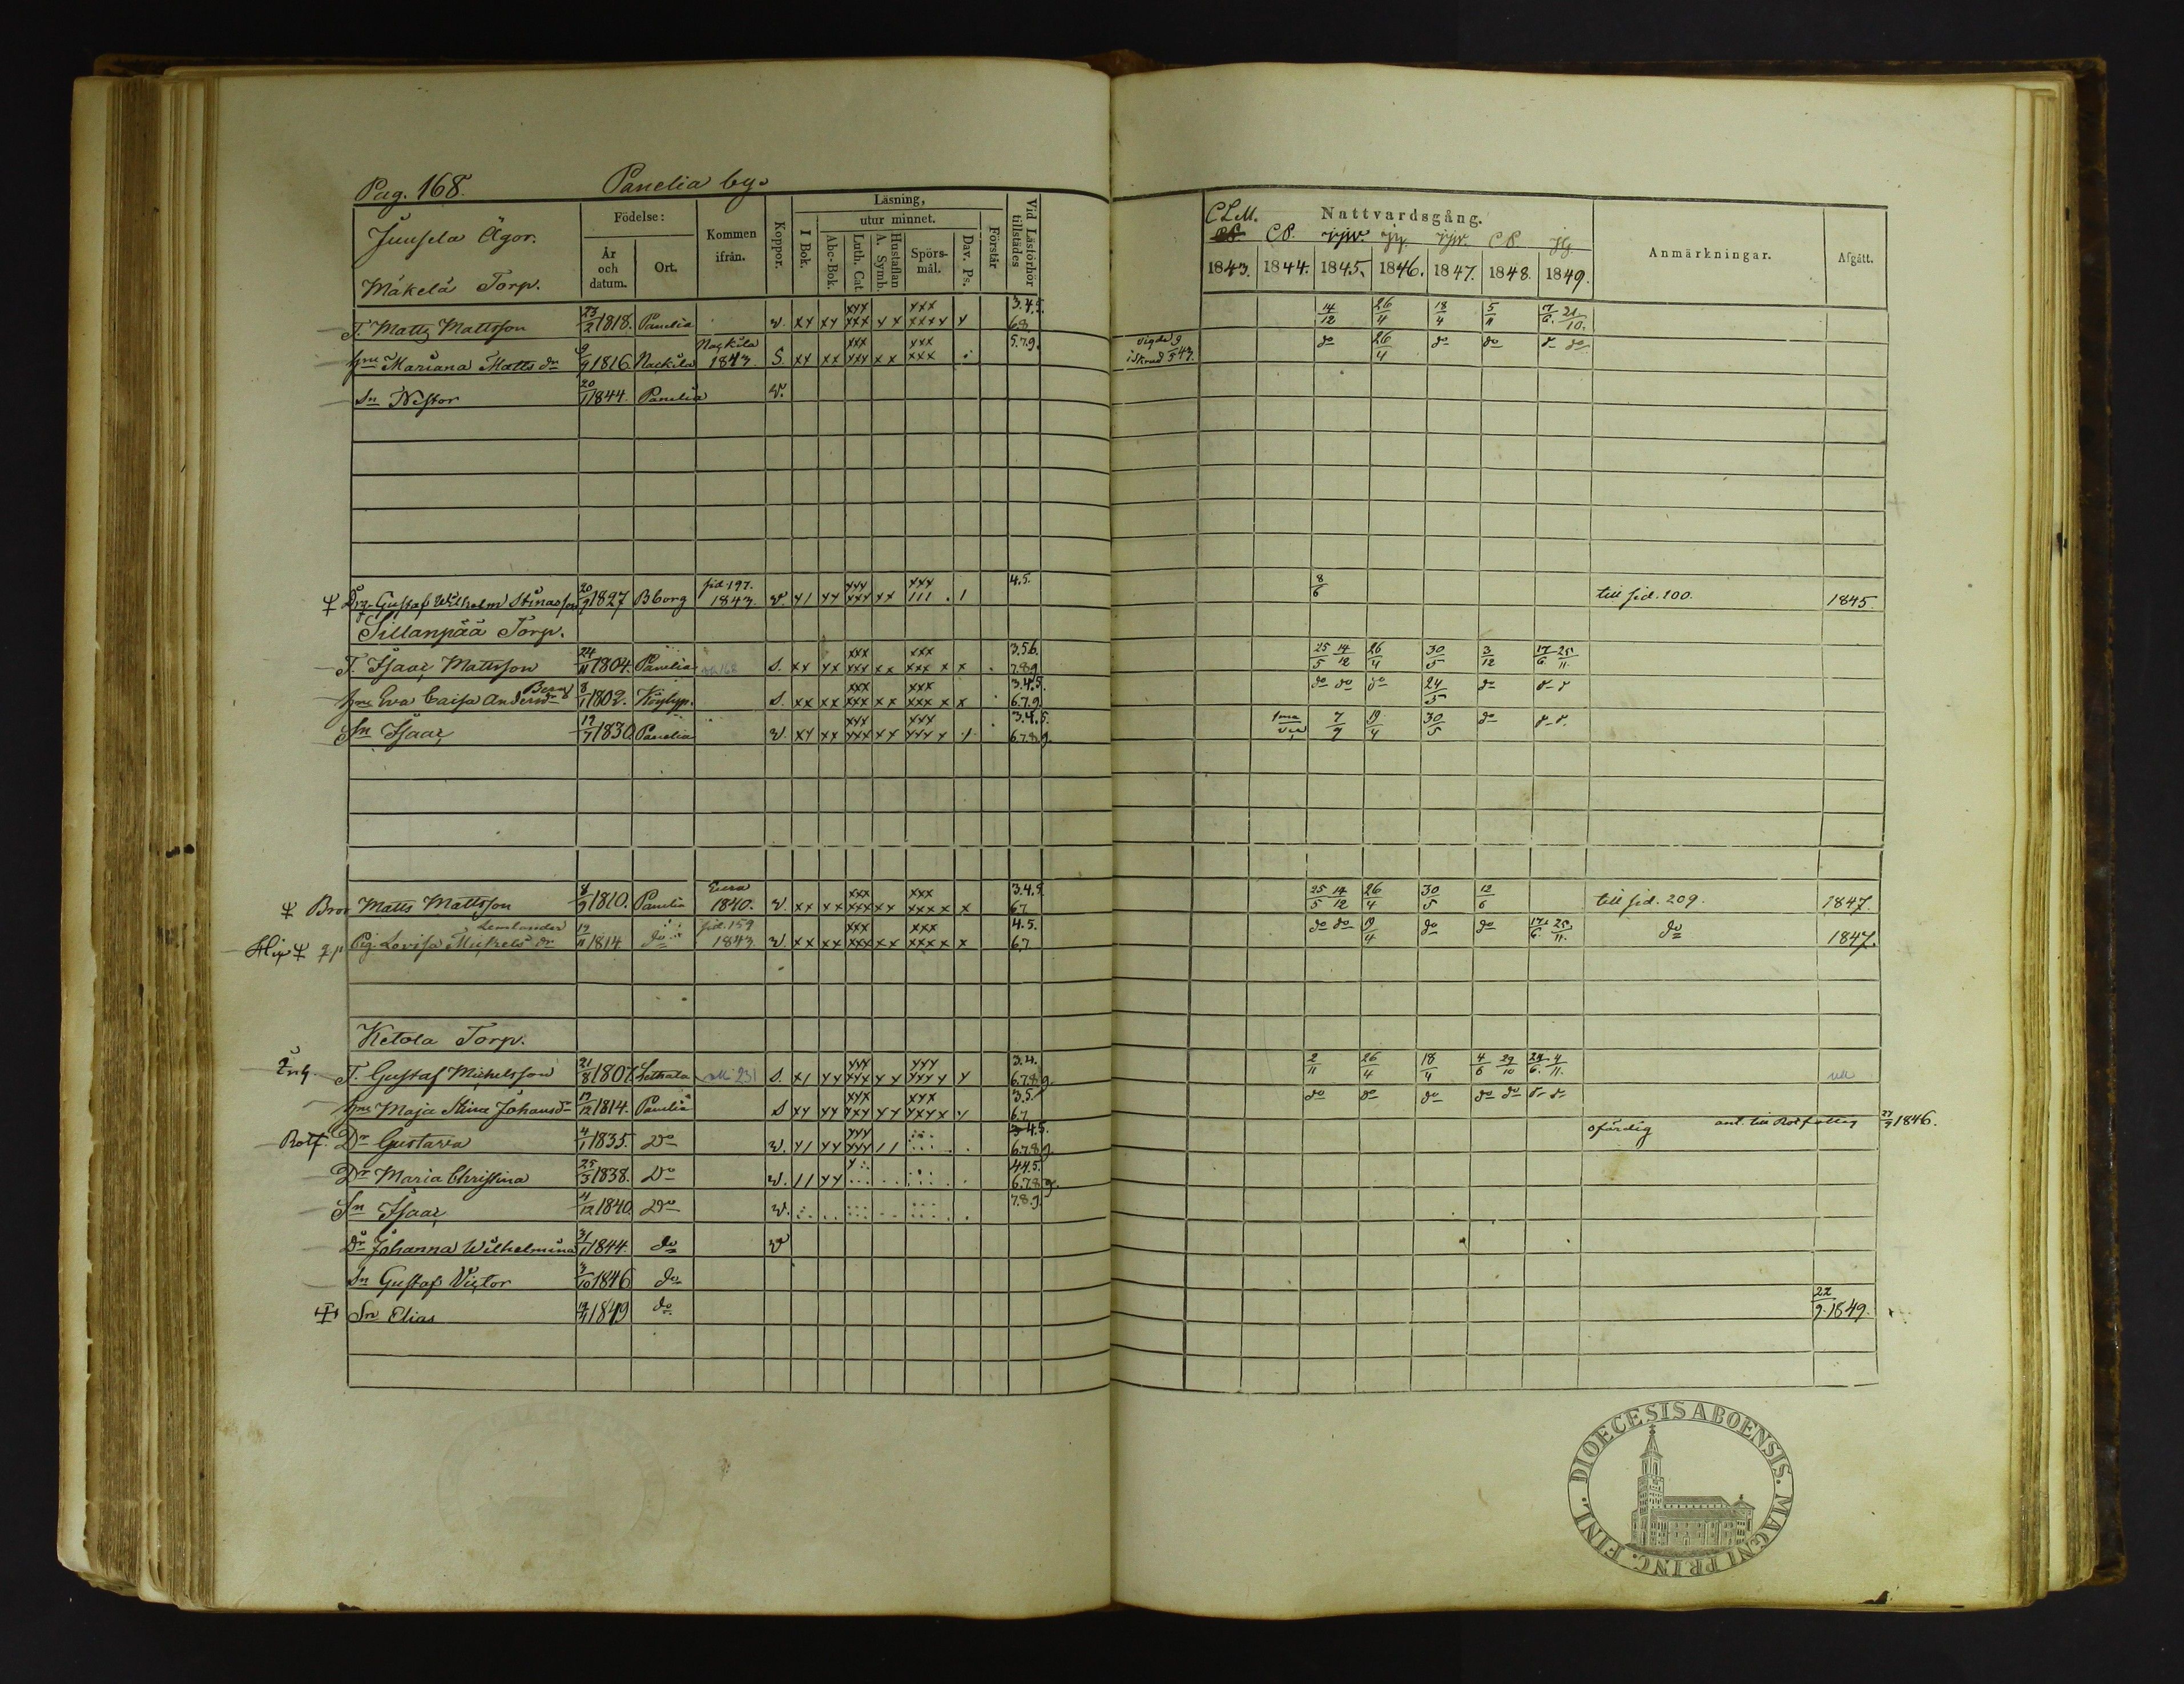 Pag. 168. Panelia by.
Juusela Ägor.
Mäkelä Torp.
Födelse: År och datum. Ort. Kommen ifrån. Koppor. Läsning, I Bok. utur minnet. Abc-Bok. Luth. Cat. Hustaflan A. Symb. Spörsmål. Dav. Ps. Förstår Vid Läsförhör tillstädes
Nattvardsgång. Anmärkningar. Afgått.
C.P. C.P.
1843. 1844. 1845. 1846. 1847. 1848. 1849.
T. Matts Mattsson 23/2 1818. Panelia v. xx xx xxx xxx xx xxx xxxx x 3.4.5. 6.8. 14/12 26/4 18/4 5/11 17/6. 21/10.
hu Mariana Matts dr 9/9 1816. Nackila Nackila 1843 S. xx xx xxx xxx xx xxx xxx 5.7.9. vigde i Skrud 43. do 26/4 do do
Sn Nestor 20/1 1844. Panelia v.
Drg. Gustaf Wilhelm Stinasson 20/9 1827 Bborg sid. 197. 1843. v. x1 xx xxx xxx xx xxx 111 . 1 4.5. 8/6 till sid. 100. 1845.
Sillanpää Torp.
T. Isaac Mattsson 24/11 1804. Panelia S. xx xx xxx xxx xx xxx xxx x x 3.5.6. 7.8.9 25/5 14/12 26/4 30/5 3/12 17/6 25/11.
hu Eva Caisa Anders dr 8/1 1802. S. xx xx xxx xxx xx xxx xxx x x 3.4.5. 6.7.9. do do do 24/5 do
Sn Isaac 19/7 1830. Panelia v. xx xx xxx xxx xx xxx xxx x 3.4.5. 6.7.8.9. 1ma 7/9 19/4 30/5 do
Bror Matts Mattsson 8/9 1810. Panelia Eura 1840. v. xx xx xxx xxx xx xxx xxx x x 3.4.5. 6.7 25/5 14/12 26/4 30/5 12/6 till sid. 209. 1847.
Lemlander
Pig. Lovisa Michels dr 19/11 1814 do sid. 159 1843 v. xx xx xxx xxx xx xxx xxx x x 4.5. 6.7 do do 19/4 do do 17/6. 25/11. do 1847.
Ketola Torp.
T. Gustaf Michelsson 21/8 1807. 231 S. x1 xx xxx xxx xx xxx xxxx x 3.4. 6.7.8.9. 2/11 26/4 18/4 4/6 29/10 24/6. 4/11.
hu Maja Stina Johans dr 19/12 1814. Panelia S xx xx xxx xxx xx xxx xxxx x 3.5. 6.7 do do do do do
Rotf. Dr Gustava 4/1 1835. Do v. x1 xx xxx xxx 11 4.5. 6.7.8.9. ofärdig ant. till Rotfattig 27/9 1846.
Dr Maria Christina 25/3 1838. Do v. 11 xx 4.4.5. 6.7.8.9.
Sn Isaac 4/12 1840. Do v. 7.8.9.
Dr Johanna Wilhelmina 31/1 1844. do v
Sn Gustaf Victor 3/10 1846 do
Sn Elias 1849 do 22/9. 1849.
DIOECESIS ABOENSIS. MAGNI PRINC. FINL.